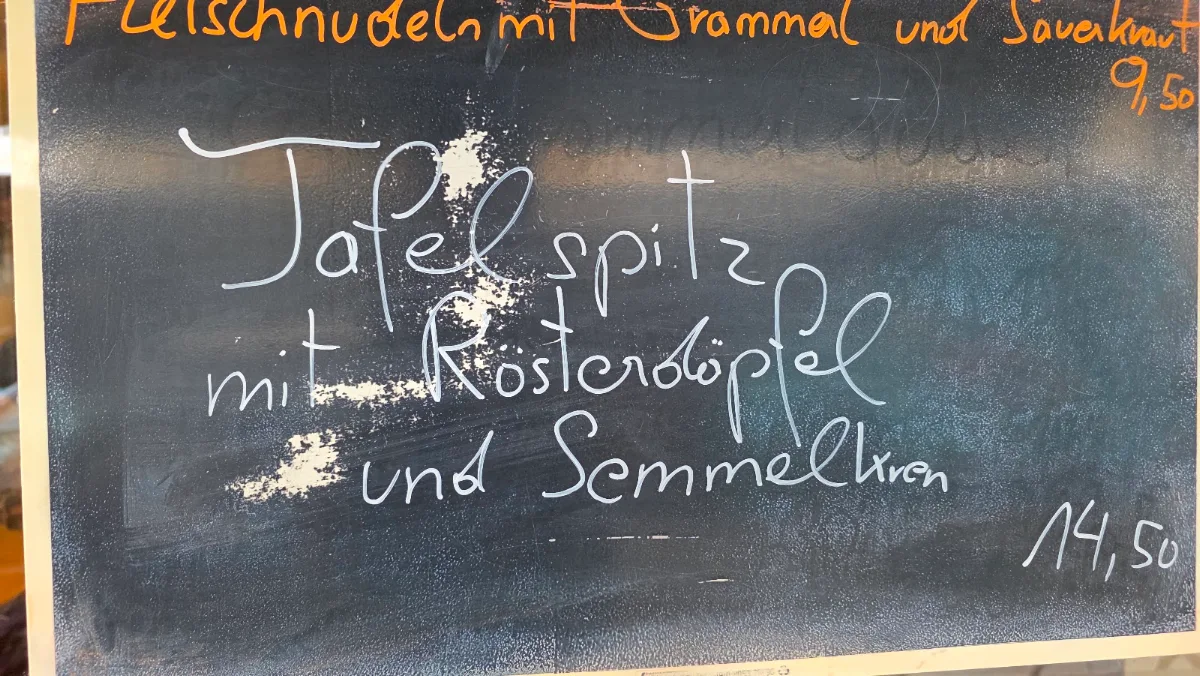 Fleischnudeln mit Grammel und Sauerkraut
9,50
Tafelspitz
mit Rösterdöpfel
und Semmelkren
14,50